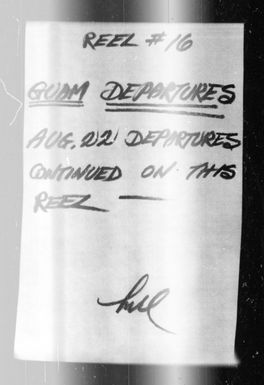 REEL #16
GUAM DEPARTURES
AUG. 22 DEPARTURES
CONTINUED ON THIS
REEL —